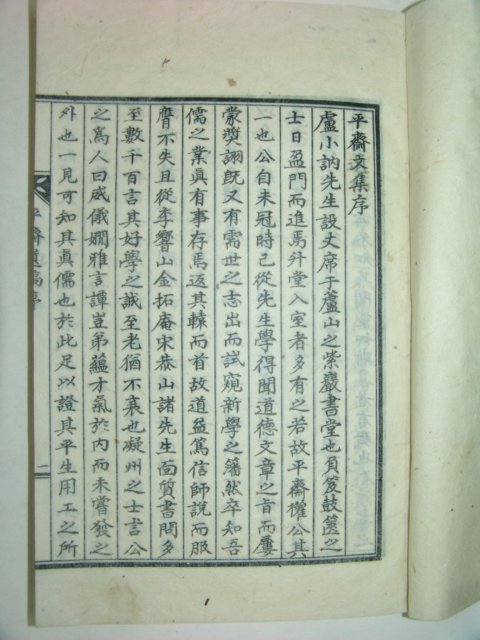 平齋文集序
盧小訥先生設丈席于蘆山之紫巖書堂也負笈鼓篋之
士日盈門而進焉升堂入室者多有之若故平齋權公其
一也公自未冠時己從先生學得聞道德文章之旨而屢
蒙奬詡旣又有需世之志出而試窺新學之籓然卒知吾
儒之業眞有事存焉返其轅而首故道益篤信師說而服
膺不失且從李響山金拓庵宋恭山諸先生面質書問多
至數千百言其好學之誠至老猶不衰也凝州之士言公
之爲人曰威儀嫺雅言譚豈弟蘊才氣於內而未嘗發之
外也一見可知其眞儒也於此足以證其平生用工之所
平齋遺稿序
一